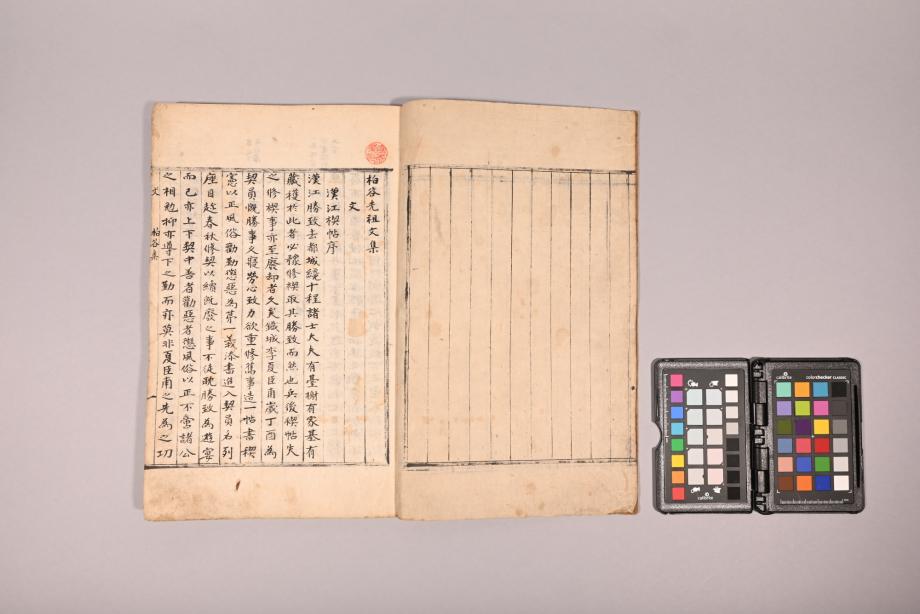 柏谷先祖文集
文
漢江禊帖序
漢江勝致去都城纔十程諸士大夫有臺榭有家基有
藏穫於此者必豫修禊取其勝致而然也兵後禊帖失
之修禊事亦至廢却者久矣鐵城李夏臣甫歲丁酉為
契員慨勝事久寢勞心致力欲重修舊事造一帖書禊
憲以正風俗勸勤懲惡為第一義添書進入契員名列
座目趁春秋修契以續既廢之事不徒耽勝致為遊宴
而已亦上下契中善者勸惡者懲風俗以正不啻諸公
之相勉抑亦導下之勤而亦莫非夏臣甫之先為之功
文 柏谷集 一
calibrite colorchecker CLASSIC
calibrite